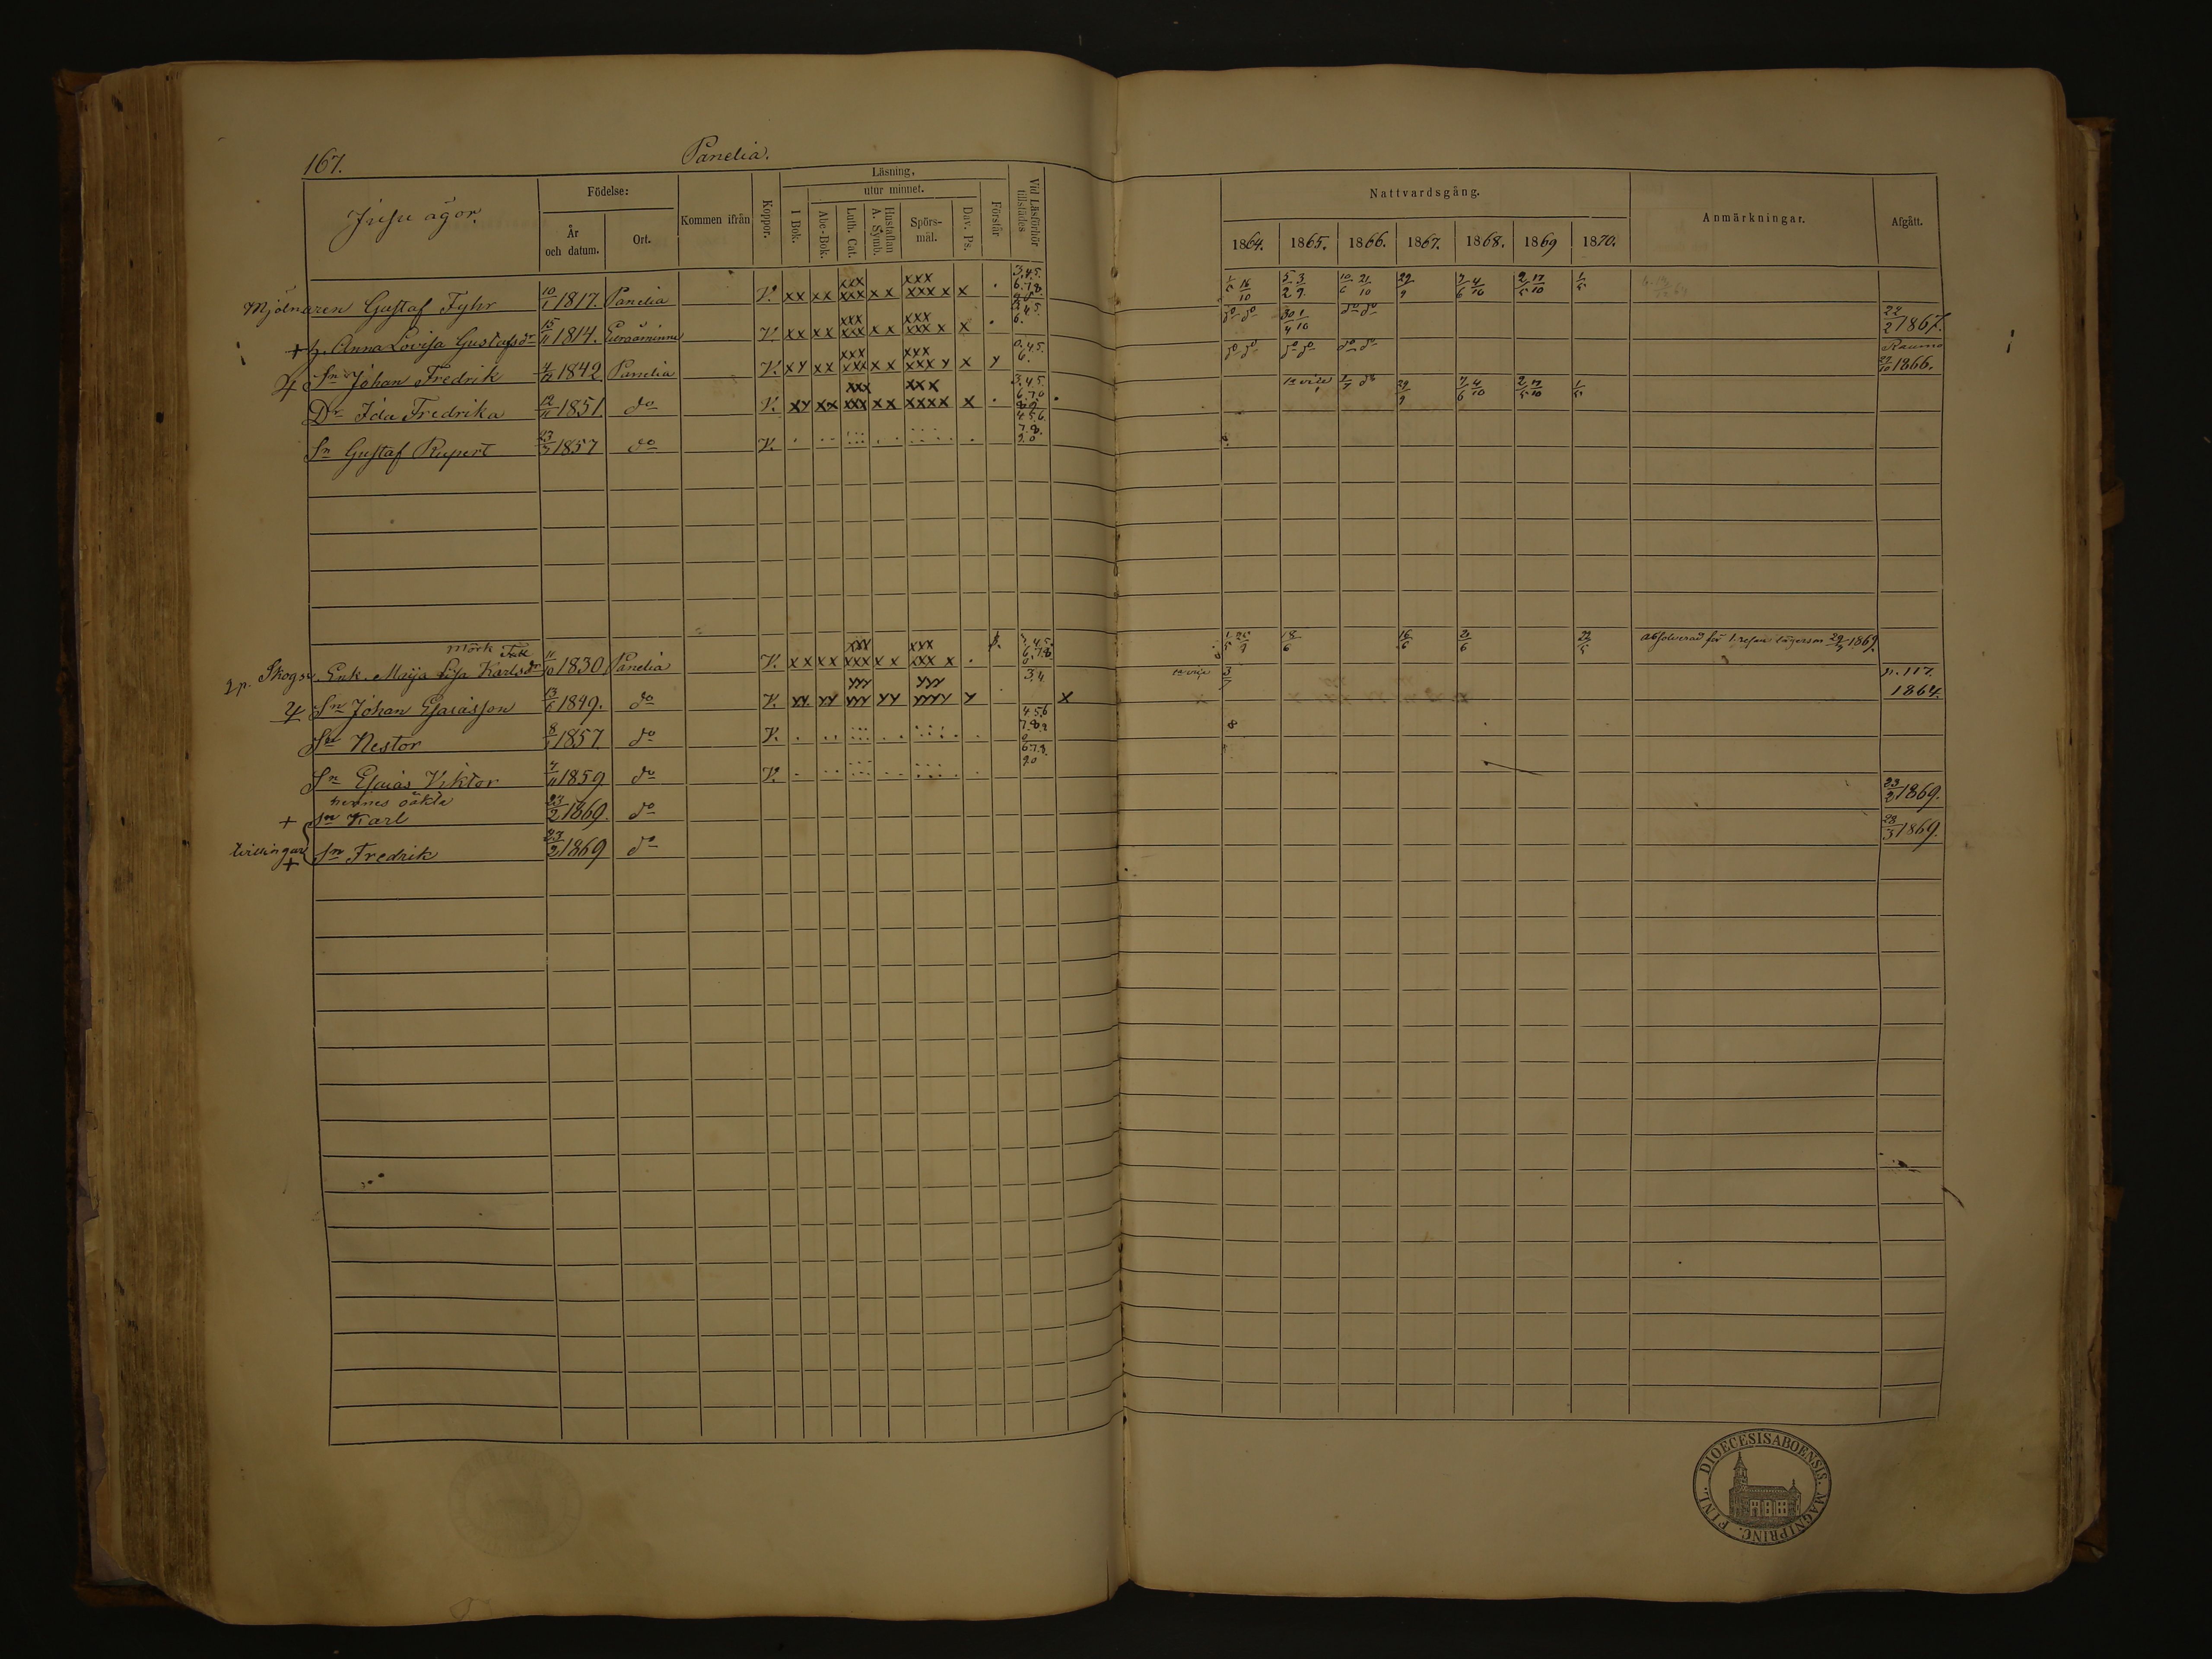 167.
Panelia.
Jusu ägor.
Födelse:
År och datum.
Ort.
Kommen ifrån
Koppor.
Läsning,
utur minnet.
I Bok.
Abc-Bok.
Luth. Cat.
Hustaflan A. Symb.
Spörsmål.
Dav. Ps.
Förstår
Vid Läsförhör tillstädes
Nattvardsgång.
1864. 1865. 1866. 1867. 1868. 1869 1870.
Anmärkningar.
Afgått.
Mjölnaren Gustaf Fyhr 10/1 1817. Panelia V. xx xx xxx xxx xx xxx xxx x x 3.4.5. 6.7.8. 1/5 16/10 5/2 3/9. 10/6 21/10 29/9 7/6 4/10 2/5 17/10 1/5
+ h. Anna Lovisa Gustafsdr 15/11 1814. Euraåminne V. xx xx xxx xxx xx xxx xxx x x 4.5. 6. do do 30/4 1/10 do do 22/2 1867.
Sn Johan Fredrik 4/12 1842 Panelia V. xy xx xxx xxx xx xxx xxx y x y 0.4.5. 6. do do do do do do Raumo 22/10 1866.
Dr Ida Fredrika 12/11 1851 do V. xy xx xxx xxx xx xxx xxxx x 3.4.5. 6.7.0 1a vice 1/7 do 29/9 7/6 4/10 2/5 17/10 1/5
Sn Gustaf Rupert 23/3 1857 do V. 4.5.6. 7.8. 9.0
Mörk
Skogsv. Enk. Maija Lisa Karlsdr 11/10 1830 Panelia V. xx xx xxx xxx xx xxx xxx x 4.5. 6.7.8. 18/6 16/6 21/6 22/5 absolverad för 1. resan lägersm 29/7 1869.
Sn Johan Esaiasson 13/6 1849. do V. yy yy yyy yyy yy yyy yyyy y 3.4 x 1a vice 3/7 p. 117. 1864.
Sn Nestor 8/1 1857 do V. 4 5 6 7.8.9 8
Sn Esaias Viktor 7/11 1859 do V. 6.7.8. 9.0
hennes oäkta
+ Sn Karl 23/2 1869. do 23/2 1869.
tvillingar + Sn Fredrik 23/2 1869 do 28/3 1869.
DIOECESIS ABOENSIS. MAGNI PRINC. FINL.